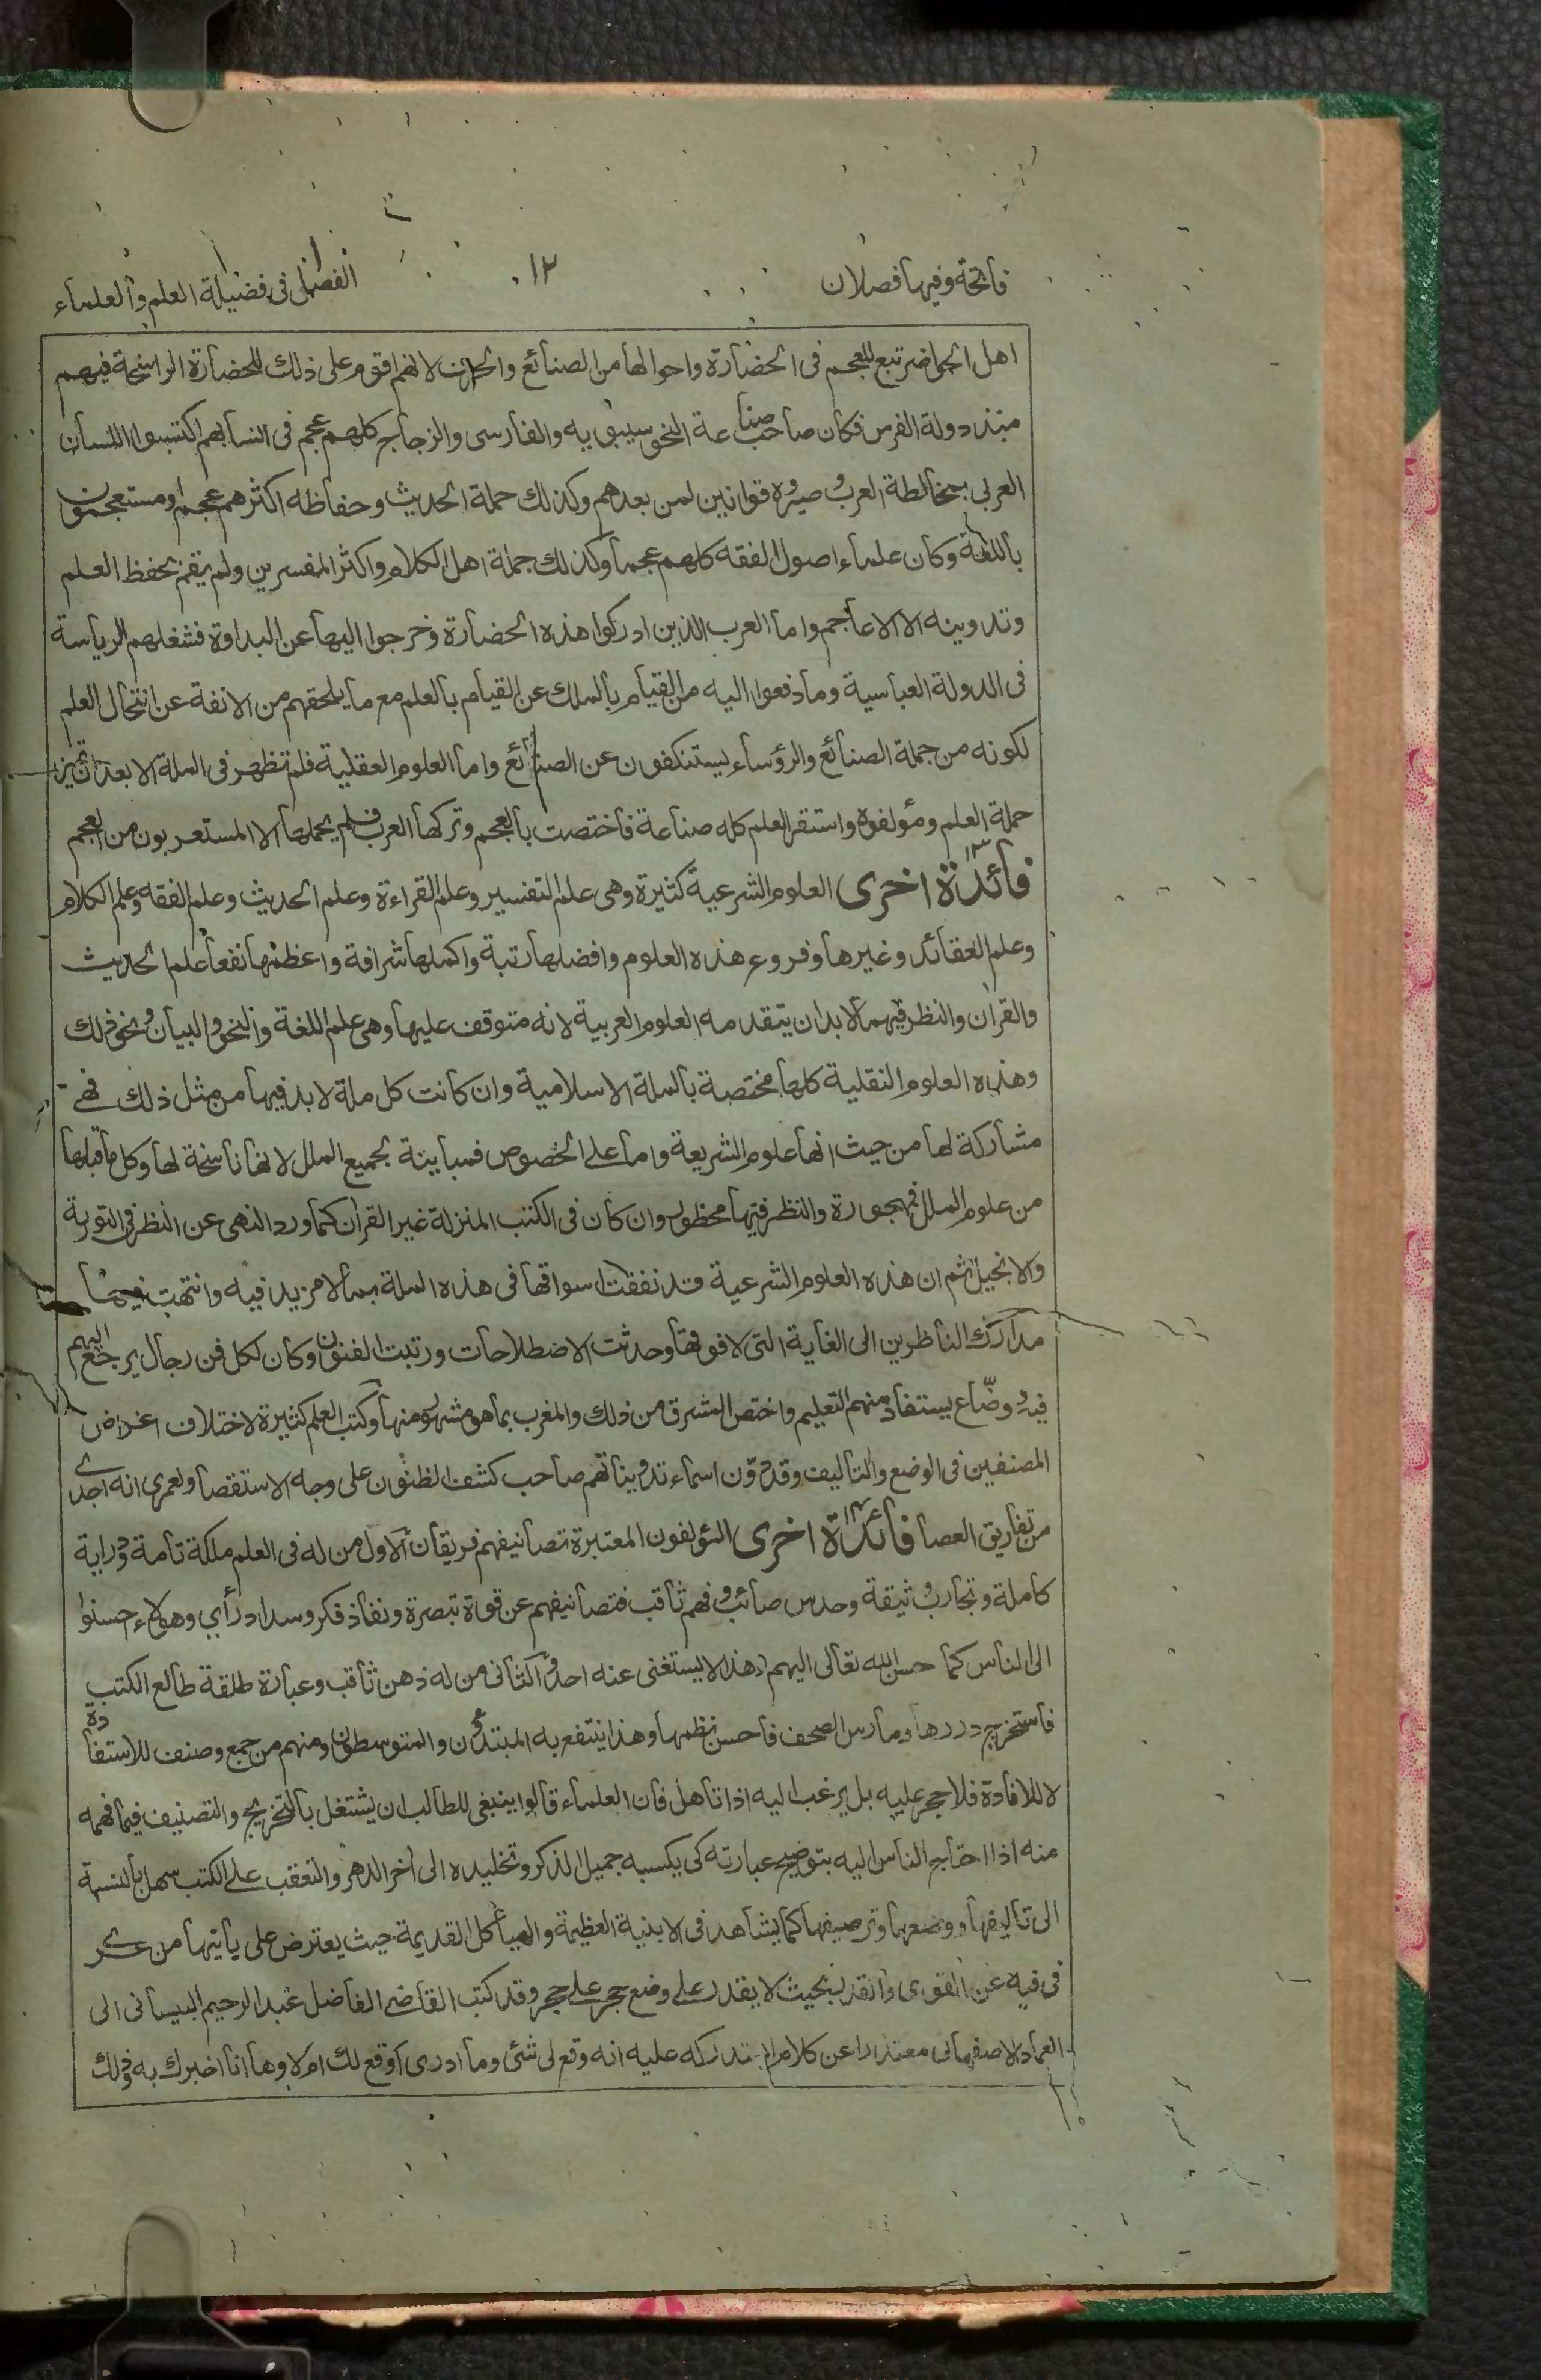 فاتحة وفيها فصلان
١٢
الفصل فى فضيلة العلم والعلماء
اهل الحواضر تبع للعجم فى الحضارة واحوالها من الصنائع والحرف لانهم اقوم على ذلك للحضارة الراسخة فيهم
منذ دولة الفرس فكان صاحب صناعة النحو سيبويه والفارسى والزجاج كلهم عجم فى انسابهم اكتسبوا اللسان
العربى بمخالطة العرب وصيروه قوانين لمن بعدهم وكذلك حملة الحديث وحفاظه اكثرهم عجم او مستعجمون
باللغة وكان علماء اصول الفقه كلهم عجما وكذلك جملة اهل الكلام واكثر المفسرين ولم يقم بحفظ العلم
وتدوينه الا الاعاجم واما العرب الذين ادركوا هذه الحضارة وخرجوا اليها عن البداوة فشغلهم الرياسة
فى الدولة العباسية وما دفعوا اليه من القيام بالملك عن القيام بالعلم مع ما يلحقهم من الانفة عن انتحال العلم
لكونه من جملة الصنائع والرؤساء يستنكفون عن الصنائع واما العلوم العقلية فلم تظهر فى الملة الا بعد ان تميز
حملة العلم ومؤلفوه واستقر العلم كله صناعة فاختصت بالعجم وتركها العرب فلم يحملها الا المستعربون من العجم
فائدة ١٣ اخرى العلوم الشرعية كثيرة وهى علم التفسير وعلم القراءة وعلم الحديث وعلم الفقه وعلم الكلام
وعلم العقائد وغيرها وفروع هذه العلوم وافضلها رتبة واكملها شرافة واعظمها نفعا علم الحديث
والقران والنظر فيهما لا بد ان يتقدمه العلوم العربية لانه متوقف عليها وهى علم اللغة والنحو والبيان ونحو ذلك
وهذه العلوم النقلية كلها مختصة بالملة الاسلامية وان كانت كل ملة لا بد فيها من مثل ذلك فهى
مشاركة لها من حيث انها علوم الشريعة واما على الخصوص فمباينة لجميع الملل لانها ناسخة لها وكل ما قبلها
من علوم الملل فمهجورة والنظر فيها محظور وان كان فى الكتب المنزلة غير القران كما ورد النهى عن النظر فى التورية
والانجيل ثم ان هذه العلوم الشرعية قد نفقت اسواقها فى هذه الملة بما لا مزيد فيه وانتهت فيها
مدارك الناظرين الى الغاية التى لا فوقها وحدثت الاصطلاحات ورتبت الفنون وكان لكل فن رجال يرجع اليهم
فيه وضّاع يستفاد منهم التعليم واختص المشرق من ذلك والمغرب بما هو مشهور منها وكتب العلم كثيرة لاختلاف اغراض
المصنفين فى الوضع والتاليف وقد دون اسماء تدويناتهم صاحب كشف الظنون على وجه الاستقصا ولعمرى انه اجدى
من تفاريق العصا فائدة ١٤ اخرى المؤلفون المعتبرة تصانيفهم فريقان الاول من له فى العلم ملكة تامة ودراية
كاملة وتجارب وثيقة وحدس صائب وفهم ثاقب فتصانيفهم عن قوة تبصرة ونفاذ فكر وسداد رأي وهولاء احسنوا
الى الناس كما احسن الله تعالى اليهم وهذا لا يستغنى عنه احد والثانى من له ذهن ثاقب وعبارة طلقة طالع الكتب
فاستخرج دررها ومارس الصحف فاحسن نظمها وهذا ينتفع به المبتدؤن والمتوسطون ومنهم من جمع وصنف للاستفادة
لا للافادة فلا حجر عليه بل يرغب اليه اذا تاهل فان العلماء قالوا ينبغى للطالب ان يشتغل بالتخريج والتصنيف فيما فهمه
منه اذا احتاج الناس اليه بتوضيح عبارته كى يكسبه جميل الذكر وتخليده الى اخر الدهر والتعقب على الكتب سهل بالنسبة
الى تاليفها ووضعها وترصيفها كما يشاهد فى الابنية العظيمة والهياكل القديمة حيث يعترض على بانيها من عرى
فى فيه عن القوى والقدر بحيث لا يقدر على وضع حجر على حجر وقد كتب القاضى الفاضل عبد الرحيم البيسانى الى
العماد الاصفهانى معتذرا عن كلام استدركه عليه انه وقع لى شئ وما ادرى أوقع لك ام لا وها انا اخبرك به وذلك